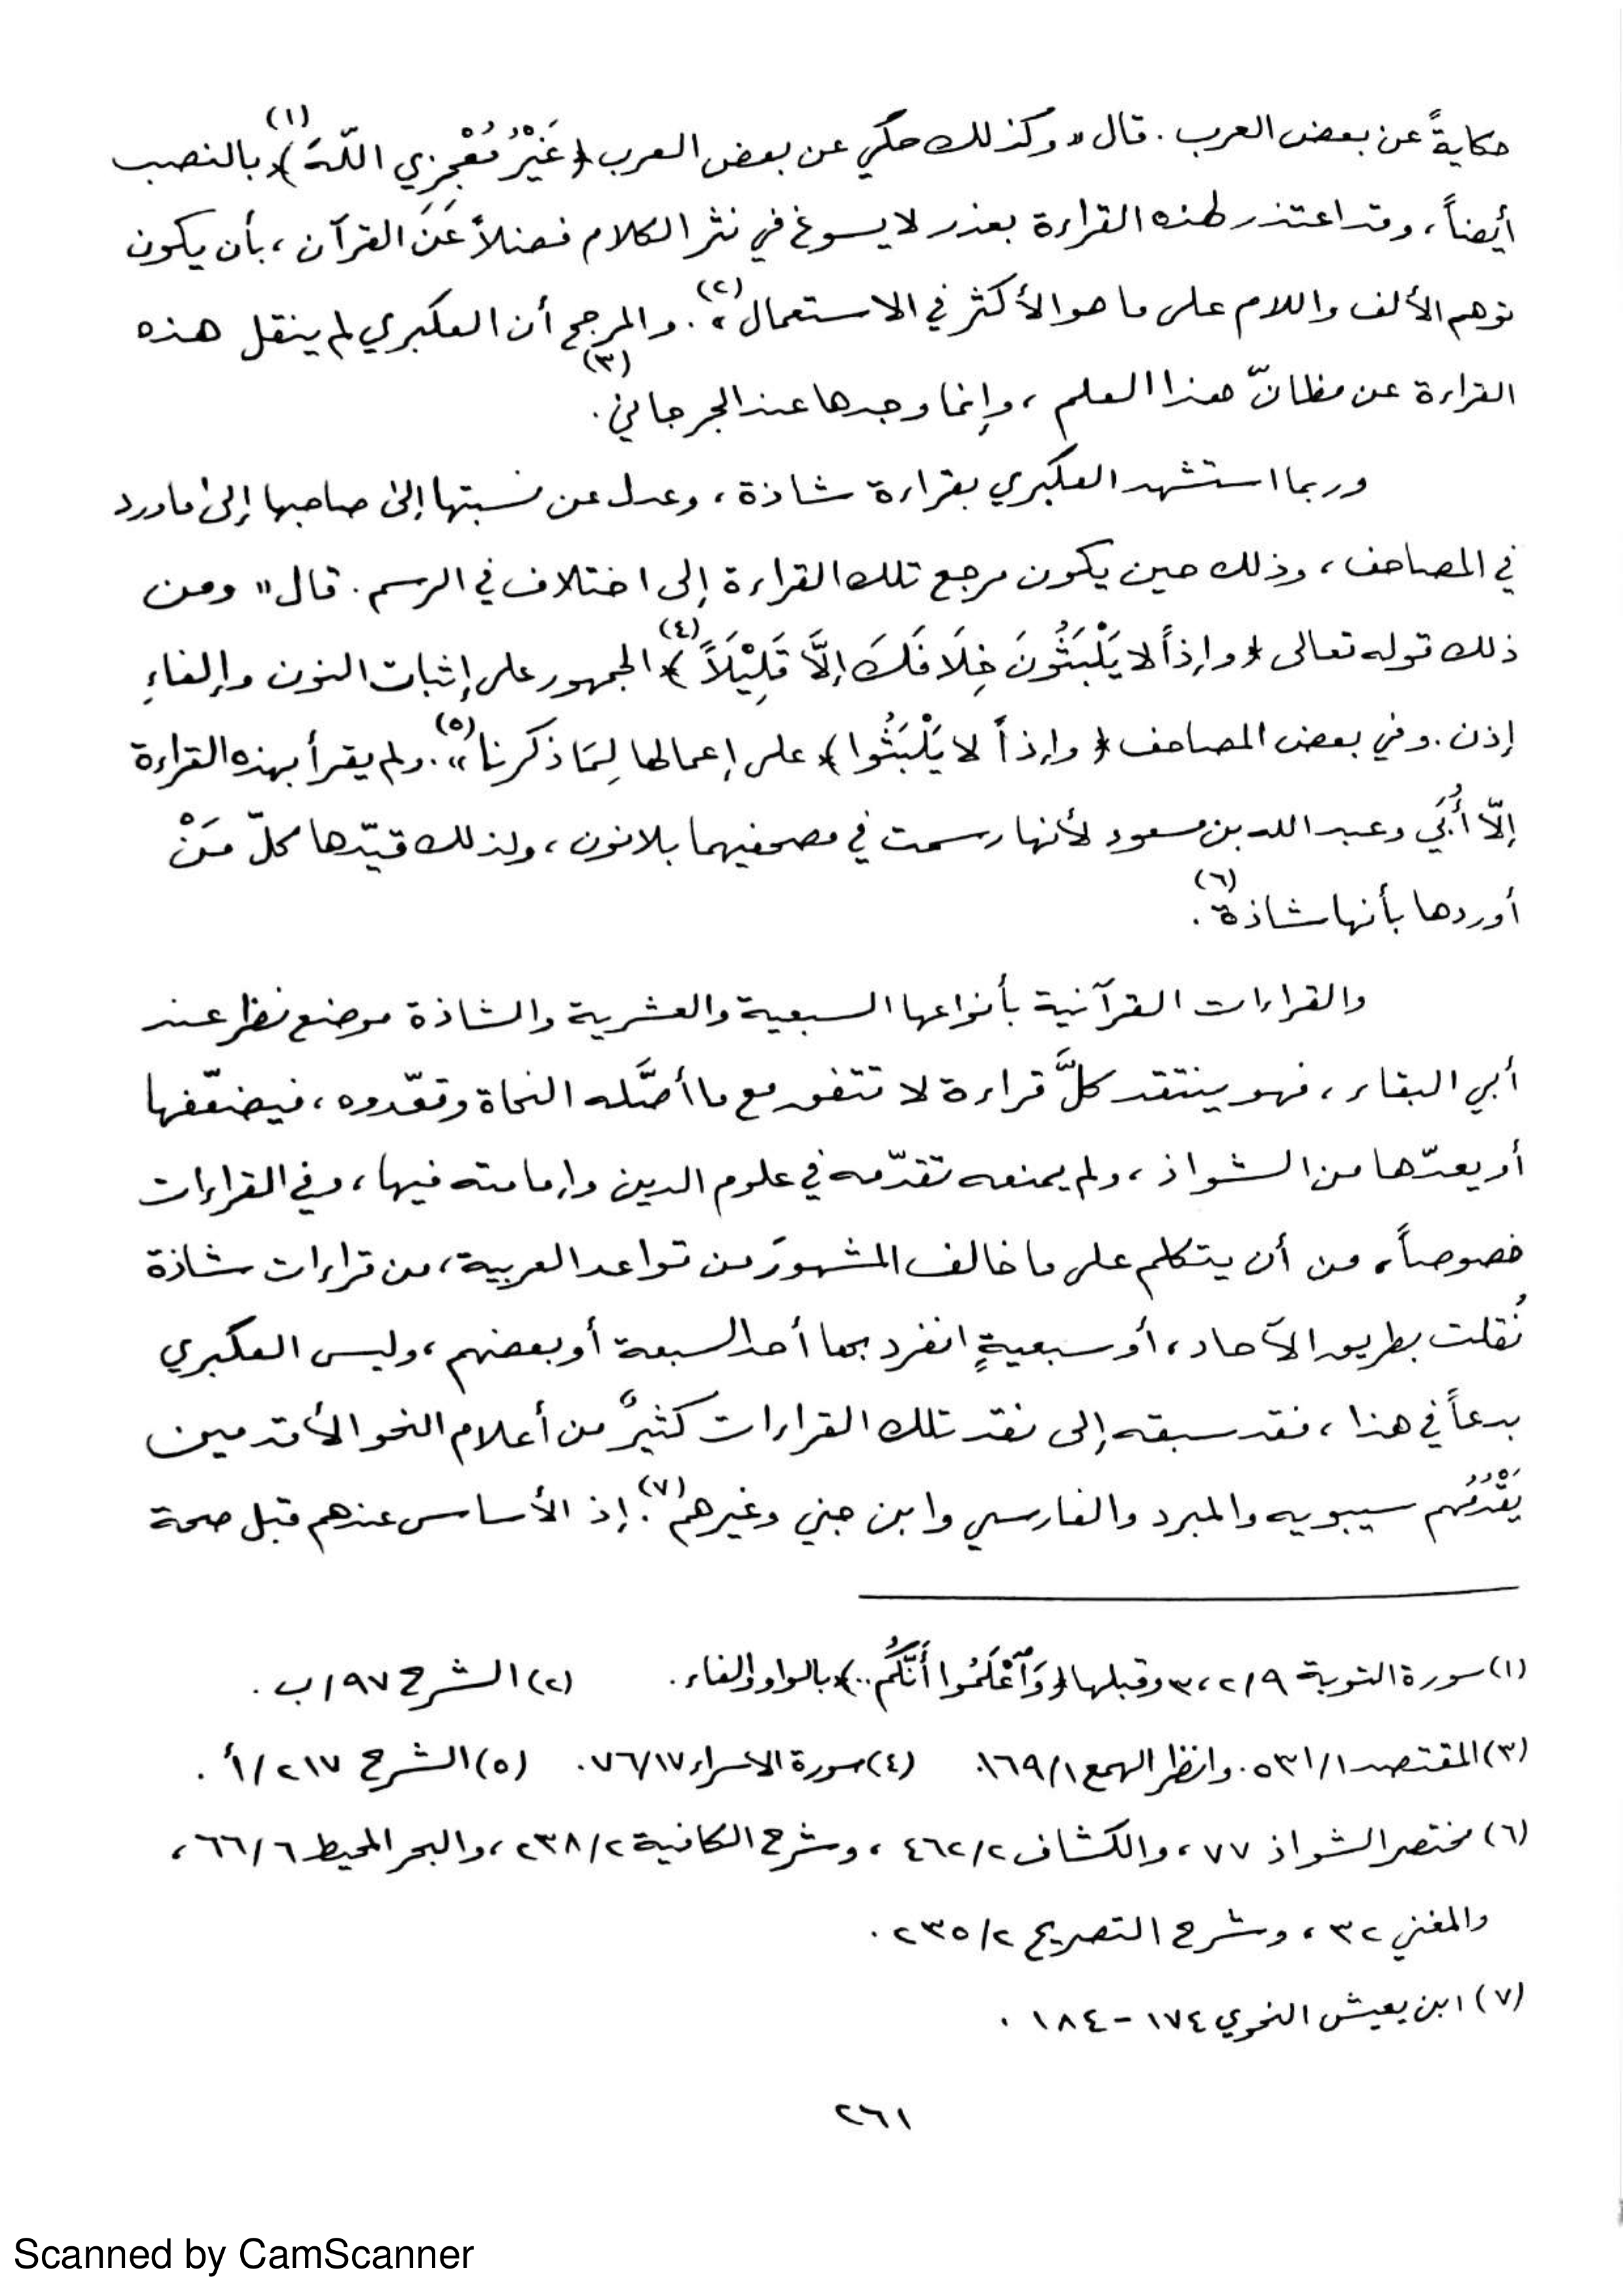 حكايةً عن بعض العرب. قال «وكذلك حكي عن بعض العرب ﴿غَيْرُ مُعْجِزِي اللّهَ﴾(١) بالنصب
أيضاً، وقد اعتذر لهذه القراءة بعذر لا يسوغ في نثر الكلام فضلاً عَنَ القرآن، بأن يكون
توهم الألف واللام على ما هو الأكثر في الاستعمال»(٢). والمرجح أن العكبري لم ينقل هذه
القراءة عن مظانّ هذا العلم، وإنما وجدها عند الجرجاني(٣).
وربما استشهد العكبري بقراءة شاذة، وعدل عن نسبتها إلى صاحبها إلى ما ورد
في المصاحف، وذلك حين يكون مرجع تلك القراءة إلى اختلاف في الرسم. قال «ومن
ذلك قوله تعالى ﴿وإذاً لا يَلْبَثُونَ خِلَافَكَ إلَّا قَلِيْلَاً﴾(٤) الجمهور على إثبات النون وإلغاءِ
إذن. وفي بعض المصاحف ﴿وإذاً لا يَلْبَثُوا﴾ على إعمالها لِمَا ذكرنا»(٥). ولم يقرأ بهذه القراءة
إلّا أُبَي وعبد الله بن مسعود لأنها رسمت في مصحفيهما بلا نون، ولذلك قيّدها كلّ مَنْ
أوردها بأنها شاذة(٦).
والقراءات القرآنية بأنواعها السبعية والعشرية والشاذة موضع نظر عند
أبي البقاء، فهو ينتقد كلَّ قراءة لا تتفق مع ما أصَّله النحاة وقعّدوه، فيضعّفها
أو يعدّها من الشواذ، ولم يمنعه تقدّمه في علوم الدين وإمامته فيها، وفي القراءات
خصوصاً، من أن يتكلم على ما خالف المشهورَ من قواعد العربية، من قراءات شاذة
نُقلت بطريق الآحاد، أو سبعيةٍ انفرد بها أحد السبعة أو بعضهم، وليس العكبري
بدعاً في هذا، فقد سبقه إلى نقد تلك القراءات كثيرٌ من أعلام النحو الأقدمين
يَقْدُمُهم سيبويه والمبرد والفارسي وابن جني وغيرهم(٧). إذ الأساس عندهم قبل صحة
(١) سورة التوبة ٩/٢، ٣ وقبلها ﴿وَٱعْلَمُوا أَنَّكُم..﴾ بالواو والفاء. (٢) الشرح ٩٧/ب.
(٣) المقتصد ١/٥٣١. وانظر الهمع ١/١٦٩. (٤) سورة الاسراء ١٧/٧٦. (٥) الشرح ٢١٧/أ.
(٦) مختصر الشواذ ٧٧، والكشاف ٢/٤٦٢، وشرح الكافية ٢/٢٣٨، والبحر المحيط ٦/٦٦،
والمغني ٣٢، وشرح التصريح ٢/٢٣٥.
(٧) ابن يعيش النحوي ١٧٤ - ١٨٤.
٢٦١
Scanned by CamScanner